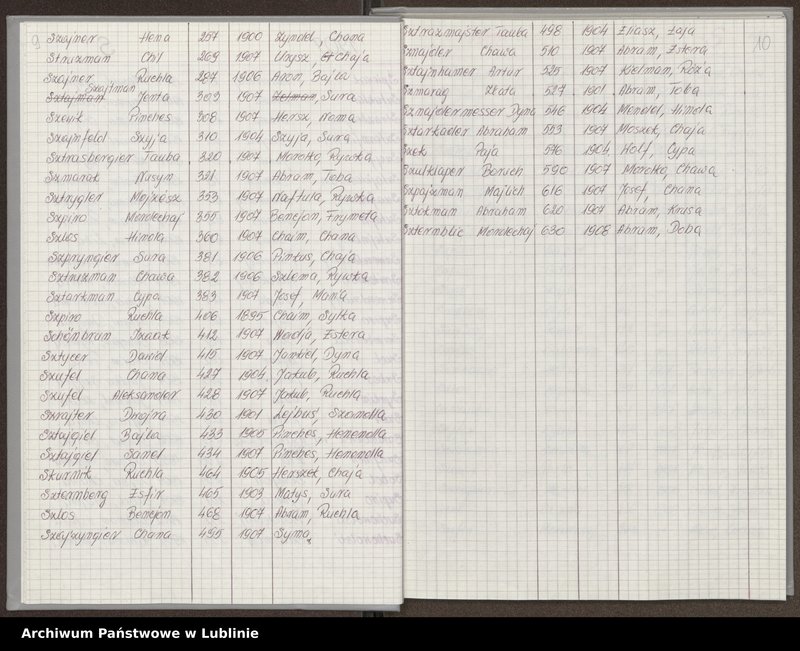 9
Szejner Hena 257 1900 Zyndel, Chana
Struzman Chil 269 1907 Uszysz, Chaja
Szejner Ruchla 287 1906 Aron, Bajla
Szajtman
Sztajman Jenta 303 1907 Zelman, Sura
Szewik Pinches 308 1907 Hersz, Noma
Szejnfeld Szyja 310 1904 Szyja, Sura
Sztrasbergier Tauba 320 1907 Mordko, Rywka
Szmarak Nusyn 321 1907 Abram, Toba
Sztrygler Mojżesz 353 1907 Naftula, Rywka
Szpiro Mordechaj 355 1907 Benejon, Frymeta
Szlos Hinda 360 1907 Chaim, Chana
Szpryngier Sura 381 1906 Pinkus, Chaja
Sztruzman Chawa 382 1906 Szlema, Rywka
Sztarkman Cypa 383 1907 Josef, Mania
Szpiro Ruchla 406 1895 Chaim, Sylka
Schönbrun Izaak 412 1907 Estera
Sztycer Dawid 415 1907 Jankiel, Dyna
Szufel Chana 427 1904 Jakub, Ruchla
Szufel Aleksander 428 1907 Jakub, Ruchla
Szrajter Dwojra 430 1901 Lejbuś, Szeindla
Sztajgiel Bajla 433 1905 Pinches, Henendla
Sztajgiel Sanel 434 1907 Pinches, Henendla
Skurnik Ruchla 464 1905 Herszek, Chaja
Szternberg Esfir 465 1903 Matys, Sura
Szlos Benejon 468 1907 Abram, Ruchla
Szejzyngier Chana 495 1907 Syma
10
Sztrazmajster Tauba 498 1904 Eliasz, Łaja
Sznajder Chawa 510 1907 Abram, Estera
Sztajnhamer Artur 525 1907 Kielman, Róża
Szmarag Złata 527 1901 Abram, Toba
Sznajdermesser Dyna 546 1904 Mendel, Hinda
Sztarkader Abraham 553 1907 Moszek, Chaja
Szek Perja 576 1904 Wolf, Cypa
Szulklaper Boruch 590 1907 Mordko, Chawa
Szpajzman Majlich 616 1907 Josef, Chana
Sztokman Abraham 620 1907 Abram, Krusa
Szternblic Mordechaj 630 1908 Abram, Doba
Archiwum Państwowe w Lublinie